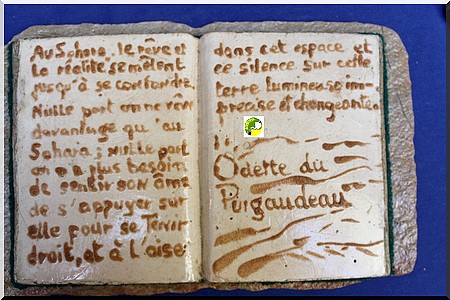 Au Sahara, le rêve et
la réalité se mêlent
jusqu'à se confondre.
Nulle part on ne rêve
davantage qu'au
Sahara; nulle part
on a plus besoin
de sentir son âme
de s'appuyer sur
elle pour se tenir
droit, et à l'aise
dans cet espace et
ce silence sur cette
terre lumineuse im-
precise et changeante.
Odette du
Puigaudeau